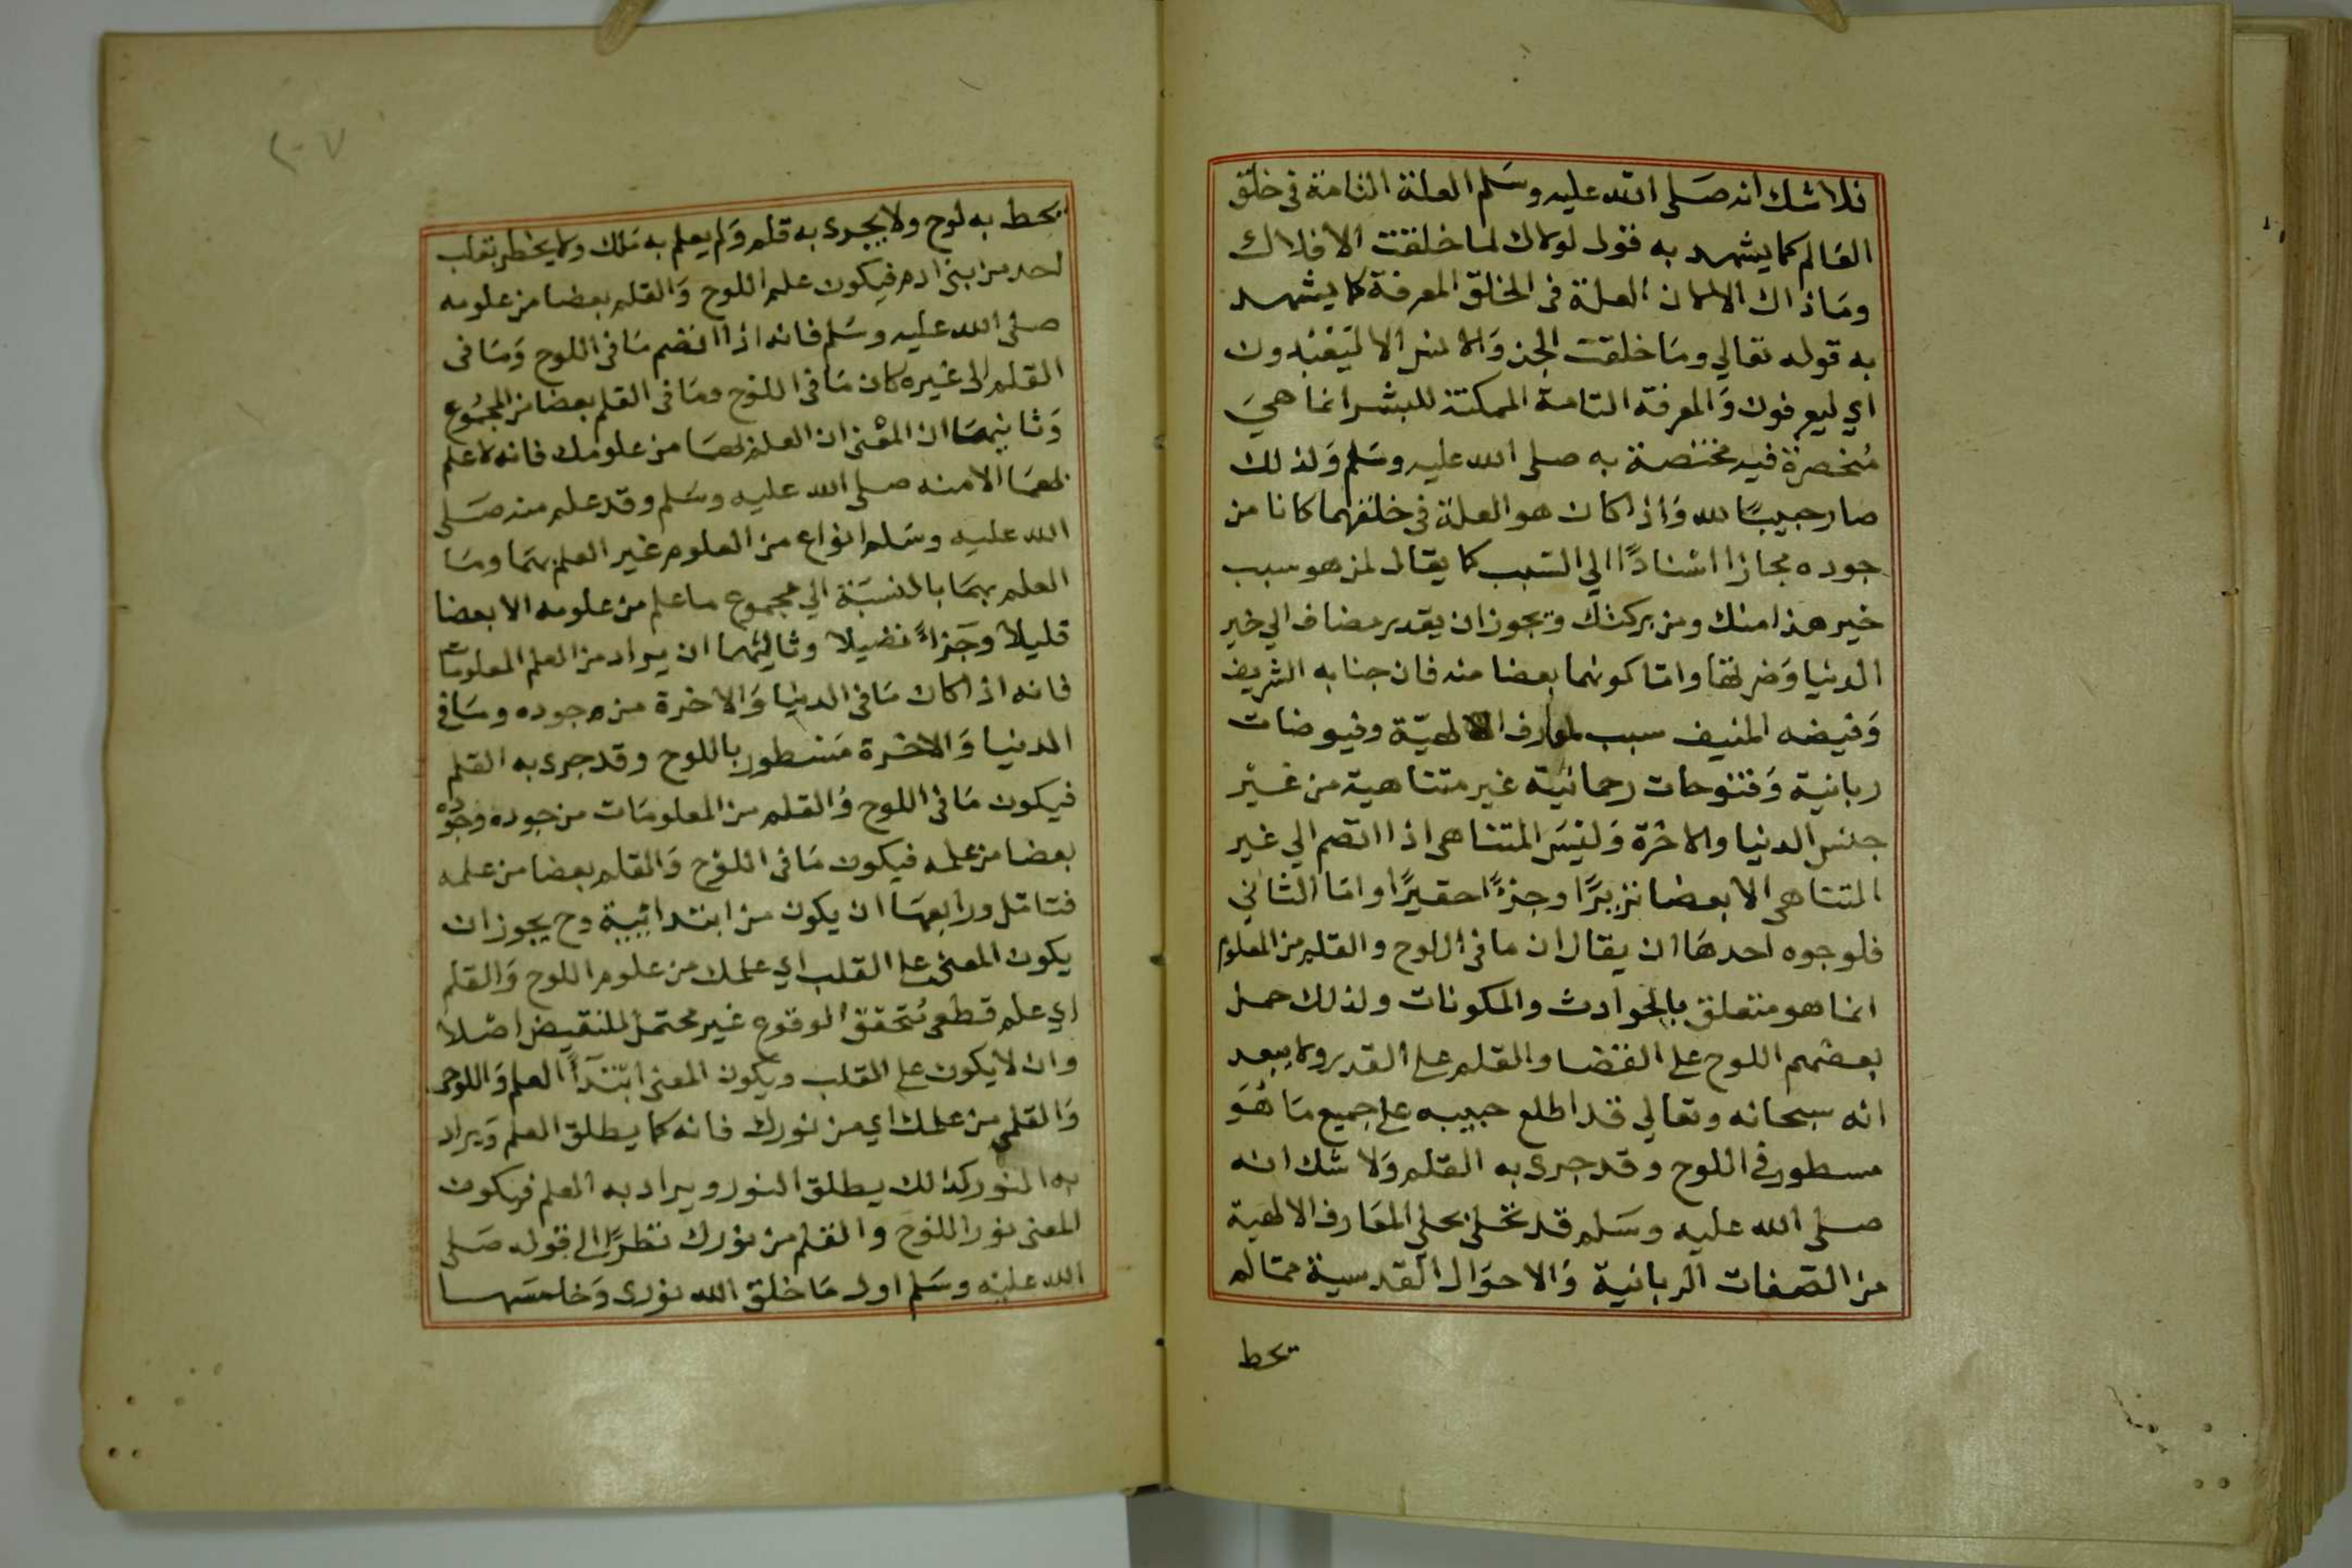 فلا شك انه صَلى الله عليه وسَلم العلة التامة فى خلق
العَالم كما يشهد به قول لولاك لما خلقت الافلاك
ومَا ذاك الا لان العلة فى الخلق المعرفة كما يشهد
به قوله تعالي ومَا خلقت الجن وَالانس الا ليَعْبدون
اي ليعرفون وَالمعرفة التامة الممكنة للبشر انما هيَ
مُنحصرة فيه مختصة به صلى الله عليه وسَلم وَلذلك
صار حبيبًا لله وَاذا كان هو العلة فى خلقهما كانا من
جوده مجازا اسْنادًا الي السَبب كما يقال لمن هو سبب
خير هذا منك ومن بركتك ويجوز ان يقدر مضاف الي خير
الدنيا وَضرتها وامّا كونهما بعضا منه فان جنابه الشريف
وَفيضه المنيف سبب لمعارف الالهيّة وفيوضات
ربانية وَفتوحات رحمانيّة غير متناهية من غيْر
جنس الدنيا والاخرة وَليْسَ المتناهى اذا انضم الي غير
المتناهى الا بعضا نزيرًا وجزءًا حقيرًا وامّا الثاني
فلوجوه احدهَا ان يقال ان ما فى اللوح والقلم من العلوم
انما هو متعلق بالحوادث والمكونات ولذلك حمل
بعضهم اللوح على القضا والقلم على القدر ولا يبعد
انه سبحانه وتعالي قد اطلع حبيبه على جميع مَا هُوَ
مسطور فى اللوح وقد جرى به القلم وَلا شك انه
صلى الله عليه وسَلم قد تحلى بحلى المعَارف الالهية
من الصّفات الربانية وَالاحوَال القدسية ممّا لم
يحط
٢٠٧
يحط به لوح ولا يجرى به قلم وَلم يعلم به مَلك ولا يخطر بقلب
احد من ابنى ادم فيكون علم اللوح وَالقلم بعضا من علومه
صلى الله عليه وسَلم فانه اذا انضم مَا فى اللوح وَمَا فى
القلم الى غيره كان مَا فى اللوح ومَا فى القلم بعضا من المجمُوع
وَثانيهمَا ان المعْنى ان العلم لهمَا من علومك فانه لا علم
لهمَا الا منه صلى الله عليه وسَلم وقد علم منه صَلى
الله عليه وسَلم انواع من العلوم غير العلم بهمَا ومَا
العلم بهمَا بالنسبَة الي مجموع ما علم من علومه الا بعضا
قليلا وَجَزاءً نضيلا وثالثهما ان يراد من العلم المعلومات
فانه اذا كان مَا فى الدنيا وَالاخرة من وجوده ومَا فى
الدنيا وَالاخرة مَسْطور باللوح وقد جرى به القلم
فيكون مَا فى اللوح وَالقلم من المعلومَات من جوده وَجوْده
بعضا من علمه فيكون مَا فى اللوْح وَالقلم بعضا من علمه
فتامّل ورابعهمَا ان يكون من ابتدائيية وح يجوز ان
يكون المعنى على القلب اي علمك من علوم اللوح وَالقلم
اي علم قطعى مُتحقق الوقوع غير محتمل للنقيض اصْلا
وان لا يكون على القلب ويكون المعنى ابْتدَآأ العلم وَاللوحى
وَالقلمى من علمك اي من نورك فانه كما يطلق العلم وَيراد
به النور كذالك يطلق النور ويراد به العلم فيكون
المعنى نور اللوح والقلم من نورك نظرًا الى قوله صَلى
الله عليه وسَلم اول مَا خلق الله نورى وَخامسَهـا